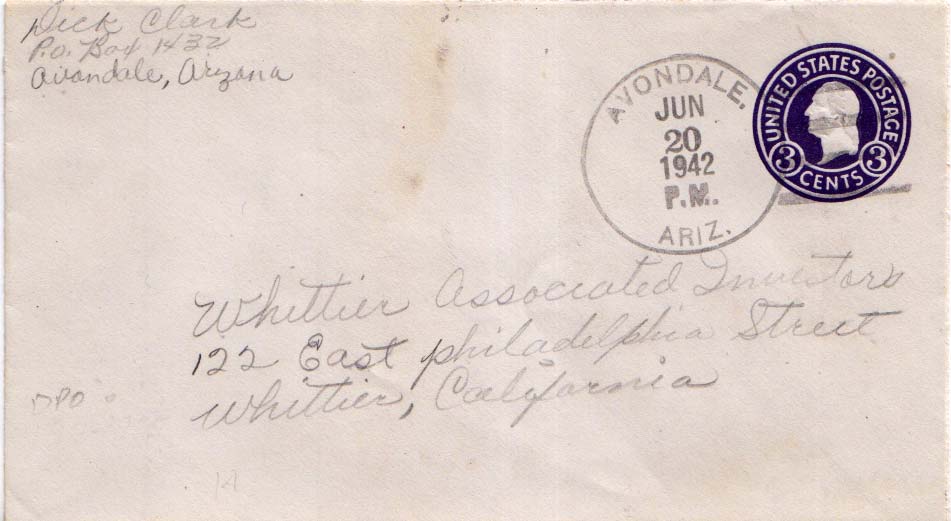 Dick Clark
P.O. Box 1432
Avondale, Arizona
AVONDALE.
JUN
20
1942
P.M.
ARIZ.
UNITED STATES POSTAGE
3 CENTS 3
Whittier Associated Investors
122 East philadelphia Street
Whittier, California
DPO